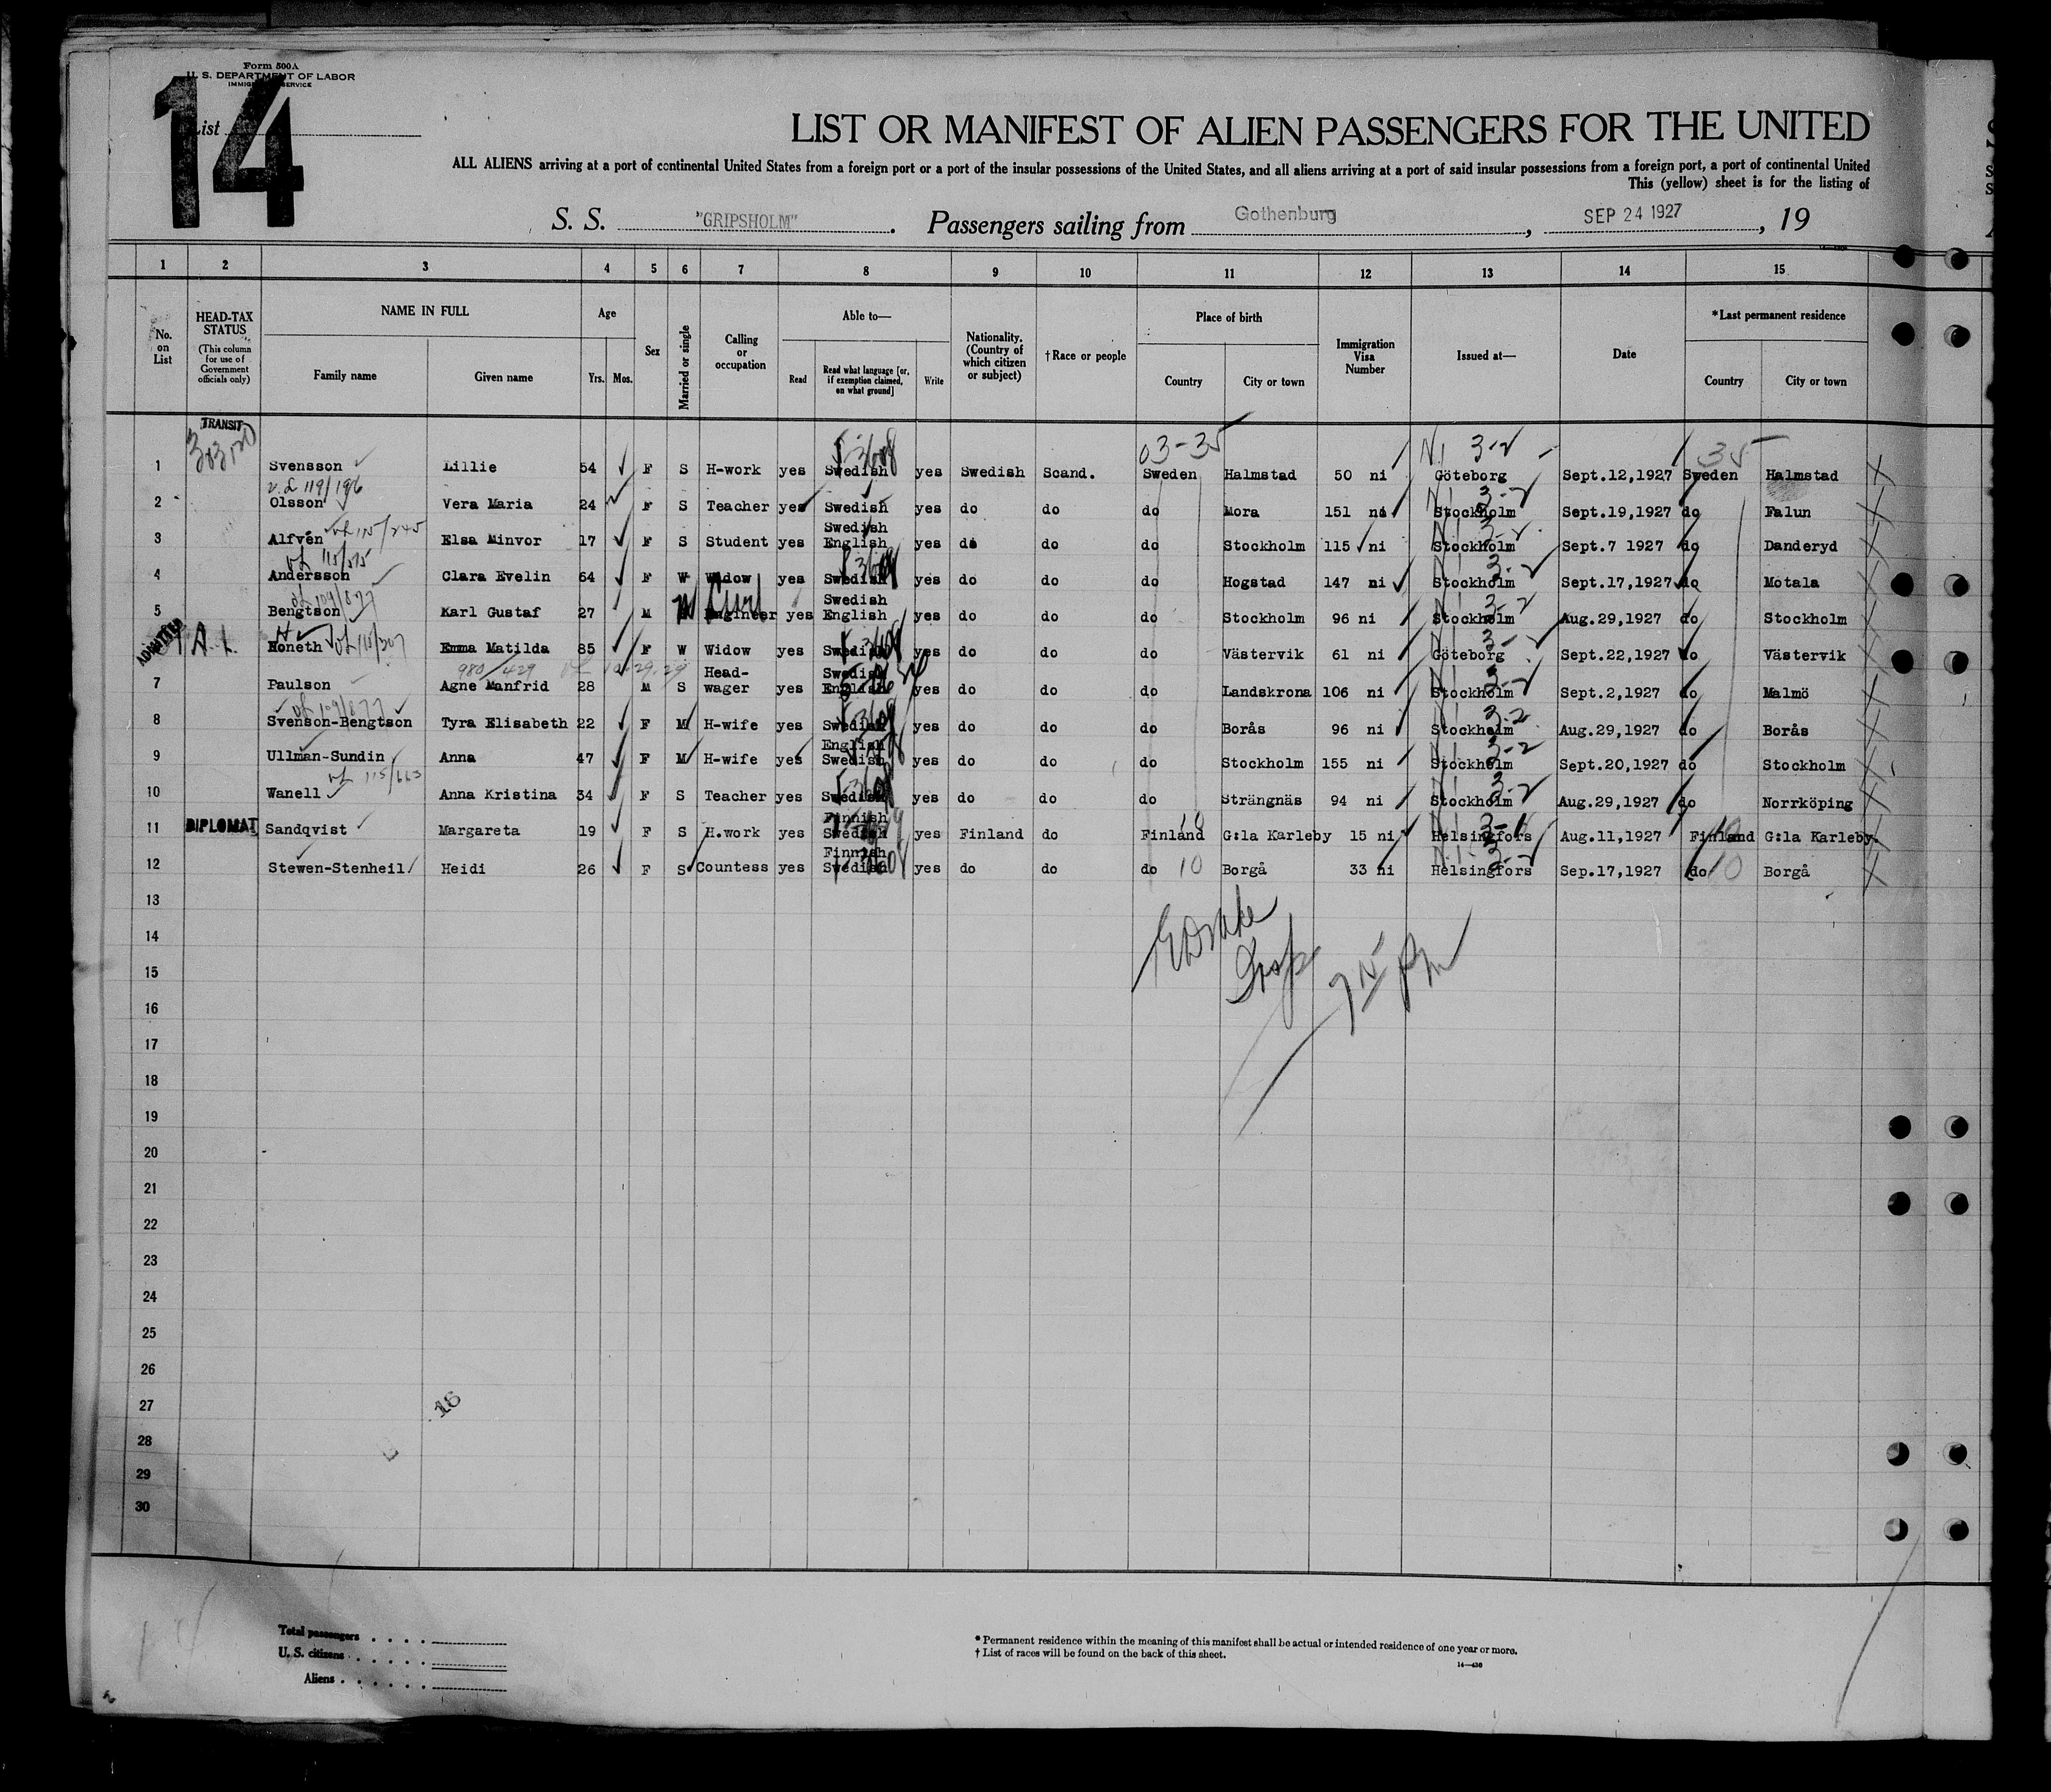 Form 500A
U. S. DEPARTMENT OF LABOR
IMMIGRATION SERVICE
14
List
LIST OR MANIFEST OF ALIEN PASSENGERS FOR THE UNITED
ALL ALIENS arriving at a port of continental United States from a foreign port or a port of the insular possessions of the United States, and all aliens arriving at a port of said insular possessions from a foreign port, a port of continental United
This (yellow) sheet is for the listing of
S. S. "GRIPSHOLM". Passengers sailing from Gothenburg, SEP 24 1927, 19
1 2 3 4 5 6 7 8 9 10 11 12 13 14 15
No. on List
HEAD-TAX STATUS (This column for use of Government officials only)
NAME IN FULL
Family name Given name
Age
Yrs. Mos.
Sex
Married or single
Calling or occupation
Able to—
Read
Read what language [or, if exemption claimed, on what ground]
Write
Nationality. (Country of which citizen or subject)
†Race or people
Place of birth
Country City or town
Immigration Visa Number
Issued at—
Date
*Last permanent residence
Country City or town
TRANSIT
03-35 N.I 3-2 35
1 Svensson Lillie 54 F S H-work yes Swedish yes Swedish Scand. Sweden Halmstad 50 ni Göteborg Sept.12,1927 Sweden Halmstad
v.L 119/196
2 Olsson Vera Maria 24 F S Teacher yes Swedish yes do do do Mora 151 ni Stockholm Sept.19,1927 do Falun
3 Alfvén Elsa Minvor 17 F S Student yes Swedish English yes do do do Stockholm 115 ni Stockholm Sept.7 1927 do Danderyd
4 Andersson Clara Evelin 64 F W Widow yes Swedish yes do do do Hogstad 147 ni Stockholm Sept.17,1927 do Motala
vL 109/877
5 Bengtson Karl Gustaf 27 M M Civil Engineer yes Swedish English yes do do do Stockholm 96 ni Stockholm Aug.29,1927 do Stockholm
ADMITTED
6 Honeth vL 115/207 Emma Matilda 85 F W Widow yes Swedish yes do do do Västervik 61 ni Göteborg Sept.22,1927 do Västervik
980/429
7 Paulson Agne Manfrid 28 M S Head-wager yes Swedish English yes do do do Landskrona 106 ni Stockholm Sept.2,1927 do Malmö
vL 109/877
8 Svenson-Bengtson Tyra Elisabeth 22 F M H-wife yes Swedish yes do do do Borås 96 ni Stockholm Aug.29,1927 do Borås
9 Ullman-Sundin Anna 47 F M H-wife yes English Swedish yes do do do Stockholm 155 ni Stockholm Sept.20,1927 do Stockholm
vL 115/663
10 Wanell Anna Kristina 34 F S Teacher yes Swedish yes do do do Strängnäs 94 ni Stockholm Aug.29,1927 do Norrköping
11 DIPLOMAT Sandqvist Margareta 19 F S H.work yes Finnish Swedish yes Finland do Finland G:la Karleby 15 ni Helsingfors Aug.11,1927 Finland G:la Karleby.
12 Stewen-Stenheil Heidi 26 F S Countess yes Finnish Swedish yes do do do 10 Borgå 33 ni Helsingfors Sep.17,1927 do 10 Borgå
13
14
15
16
17
18
19
20
21
22
23
24
25
26
27
16
28
29
30
Total passengers
U. S. citizens
Aliens
* Permanent residence within the meaning of this manifest shall be actual or intended residence of one year or more.
† List of races will be found on the back of this sheet.
14—436